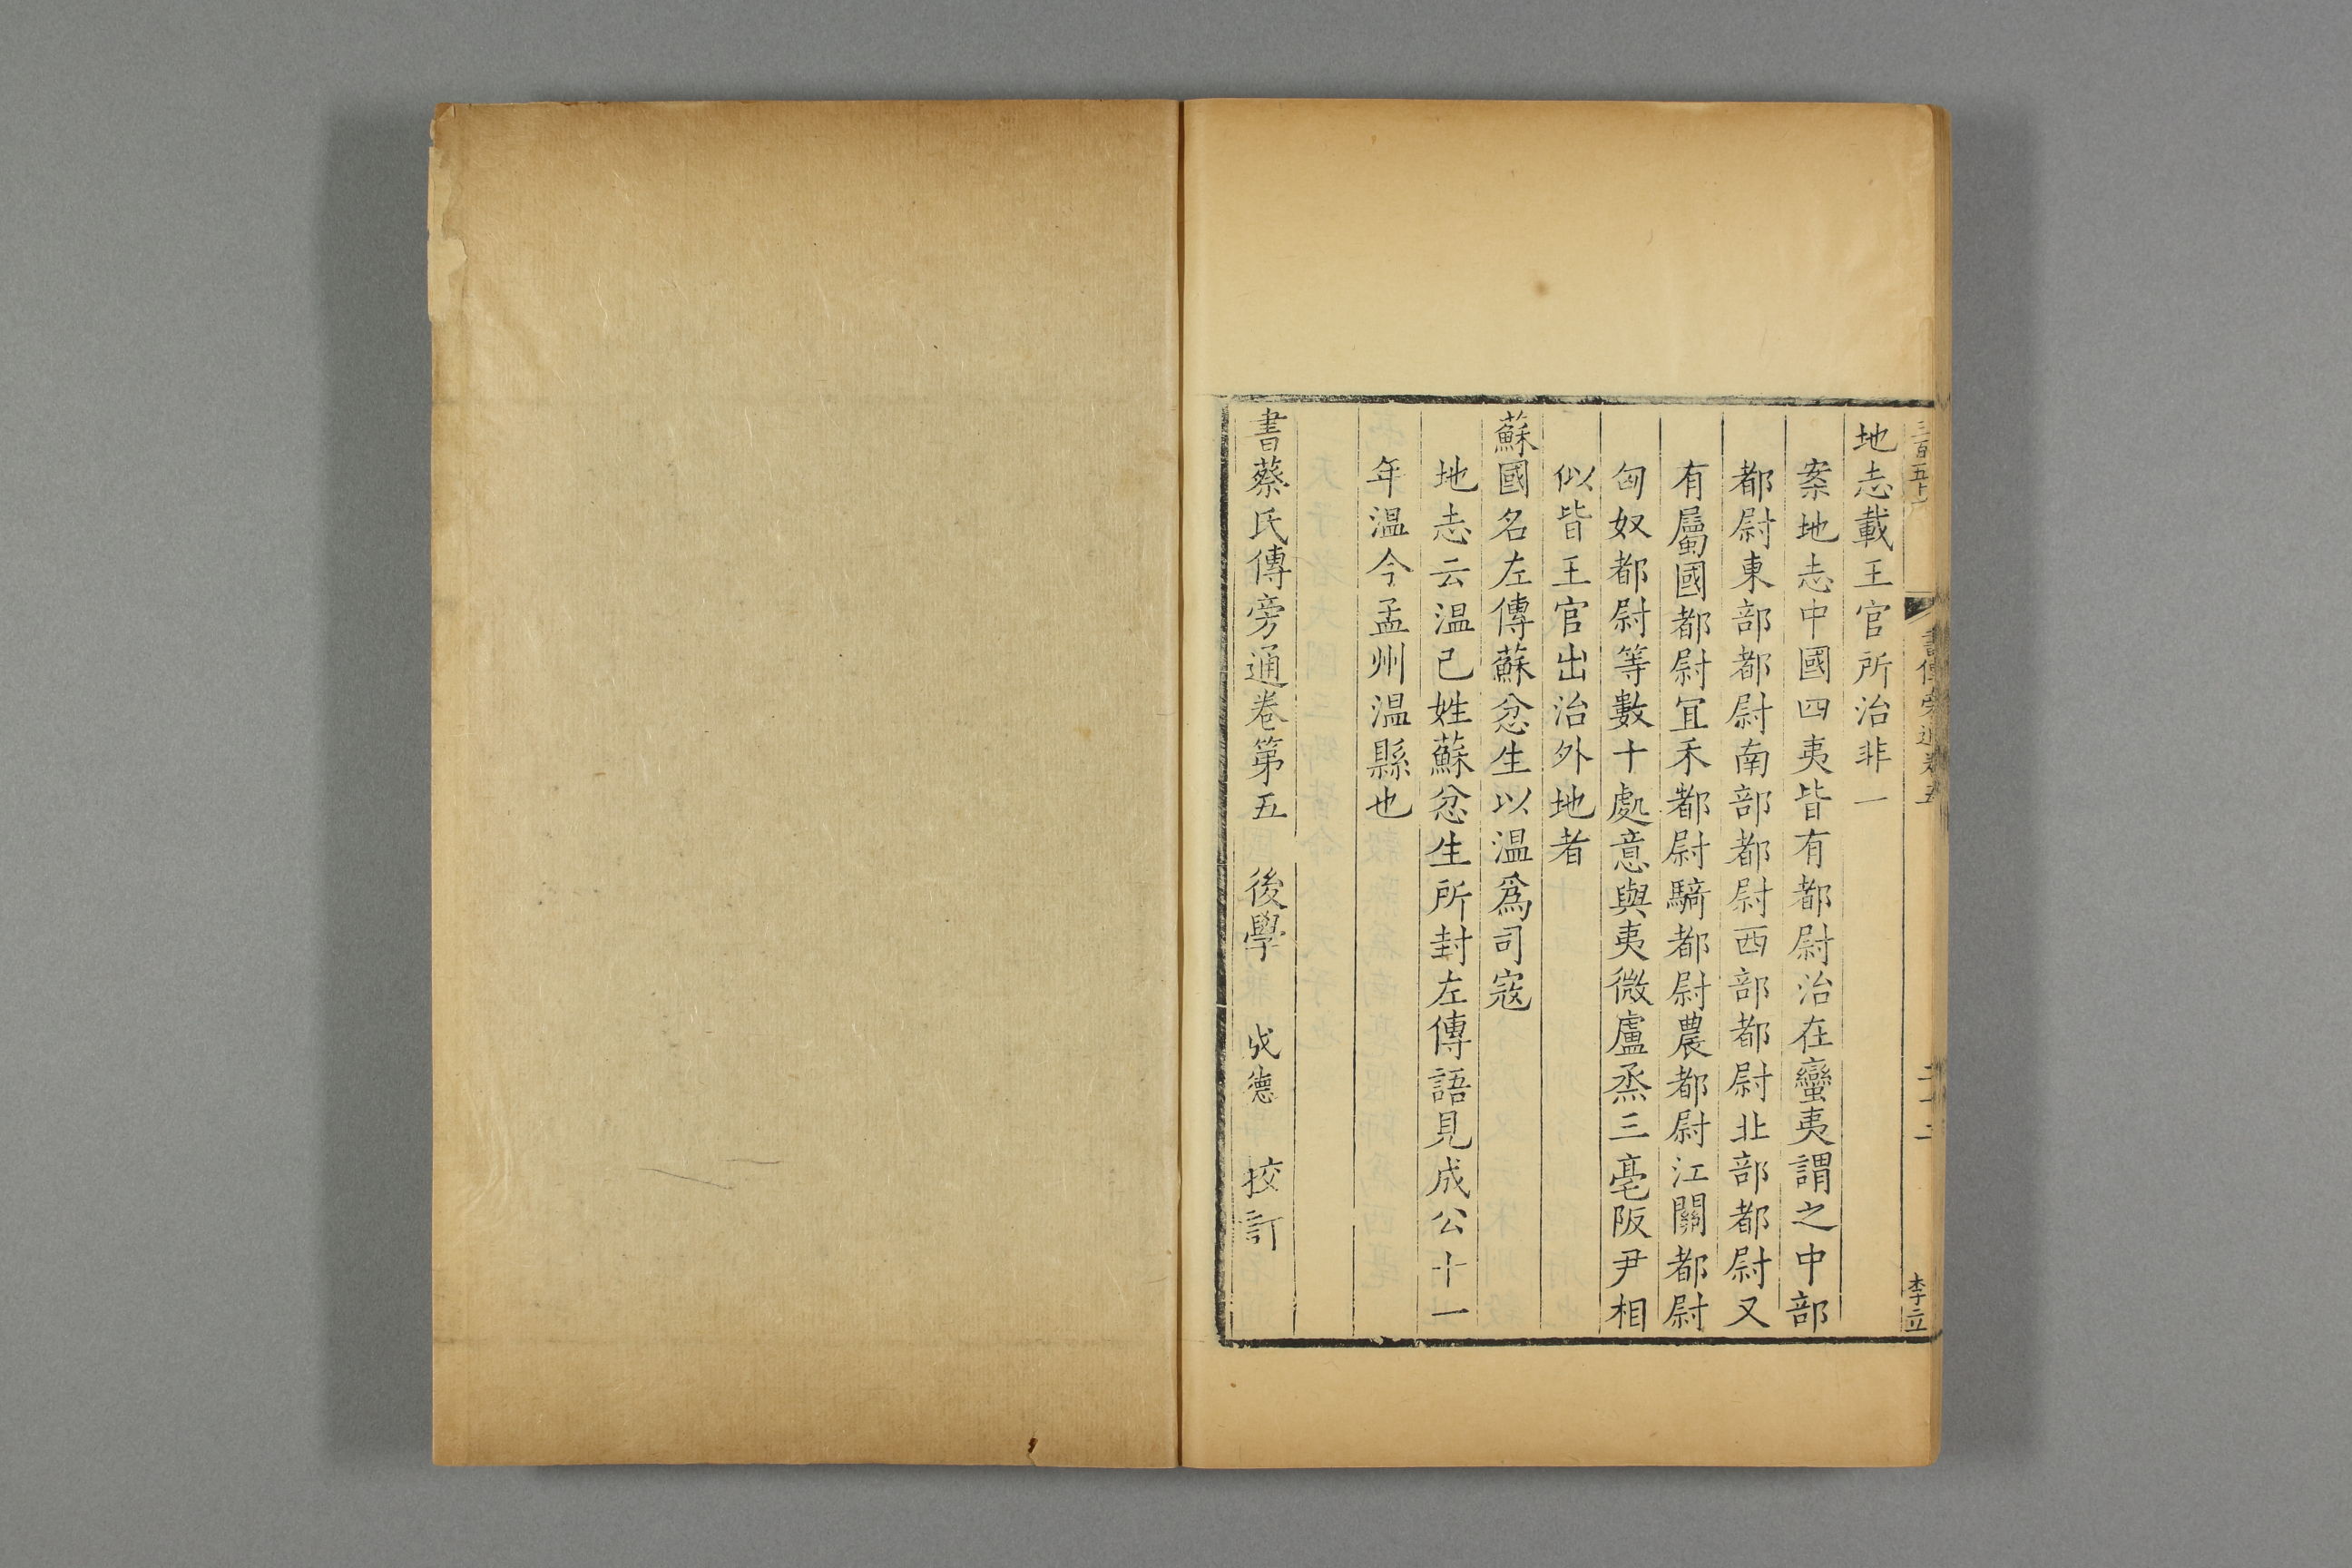 三百五十
書傳旁通卷五
李立
地志載王官所治非一
案地志中國四夷皆有都尉治在蠻夷謂之中部
都尉東部都尉南部都尉西部都尉北部都尉又
有屬國都尉宜禾都尉騎都尉農都尉江關都尉
匈奴都尉等數十處意與夷微盧烝三亳阪尹相
似皆王官出治外地者
蘇國名左傳蘇忿生以温爲司寇
地志云温己姓蘇忿生所封左傳語見成公十一
年温今孟州温縣也
書蔡氏傳旁通卷第五　後學　成德　挍訂